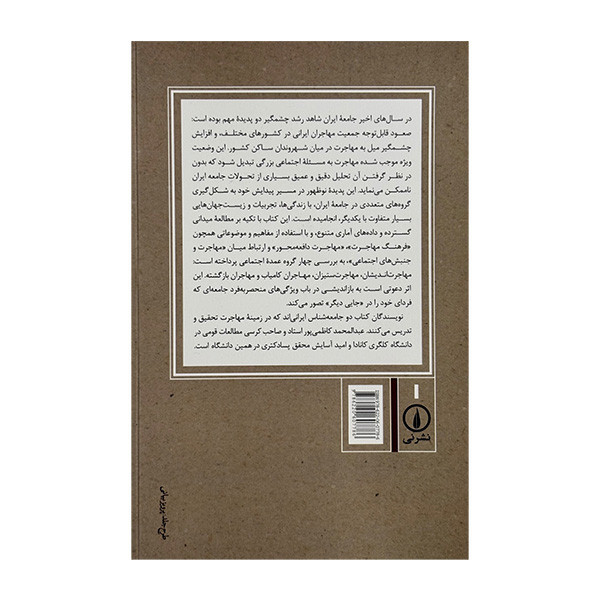 در سال‌های اخیر جامعهٔ ایران شاهد رشد چشمگیر دو پدیدهٔ مهم بوده است:
صعود قابل‌توجه جمعیت مهاجران ایرانی در کشورهای مختلف، و افزایش
چشمگیر میل به مهاجرت در میان شهروندان ساکن کشور. این وضعیت
ویژه موجب شده مهاجرت به مسئلهٔ اجتماعی بزرگی تبدیل شود که بدون
در نظر گرفتن آن تحلیل دقیق و عمیق بسیاری از تحولات جامعه ایران
ناممکن می‌نماید. این پدیدهٔ نوظهور در مسیر پیدایش خود به شکل‌گیری
گروه‌های متعددی در جامعهٔ ایران، با زندگی‌ها، تجربیات و زیست‌جهان‌هایی
بسیار متفاوت با یکدیگر، انجامیده است. این کتاب با تکیه بر مطالعهٔ میدانی
گسترده و داده‌های آماری متنوع، و با استفاده از مفاهیم و موضوعاتی همچون
«فرهنگ مهاجرت»، «مهاجرت دافعه‌محور» و ارتباط میان «مهاجرت و
جنبش‌های اجتماعی»، به بررسی چهار گروه عمدهٔ اجتماعی پرداخته است:
مهاجرت‌اندیشان، مهاجرت‌ستیزان، مهاجران کامیاب و مهاجران بازگشته. این
اثر دعوتی است به بازاندیشی در باب ویژگی‌های منحصربه‌فرد جامعه‌ای که
فردای خود را در «جایی دیگر» تصور می‌کند.
نویسندگان کتاب دو جامعه‌شناس ایرانی‌اند که در زمینهٔ مهاجرت تحقیق و
تدریس می‌کنند. عبدالمحمد کاظمی‌پور استاد و صاحب کرسی مطالعات قومی در
دانشگاه کلگری کانادا و امید آسایش محقق پسادکتری در همین دانشگاه است.
نشرنی